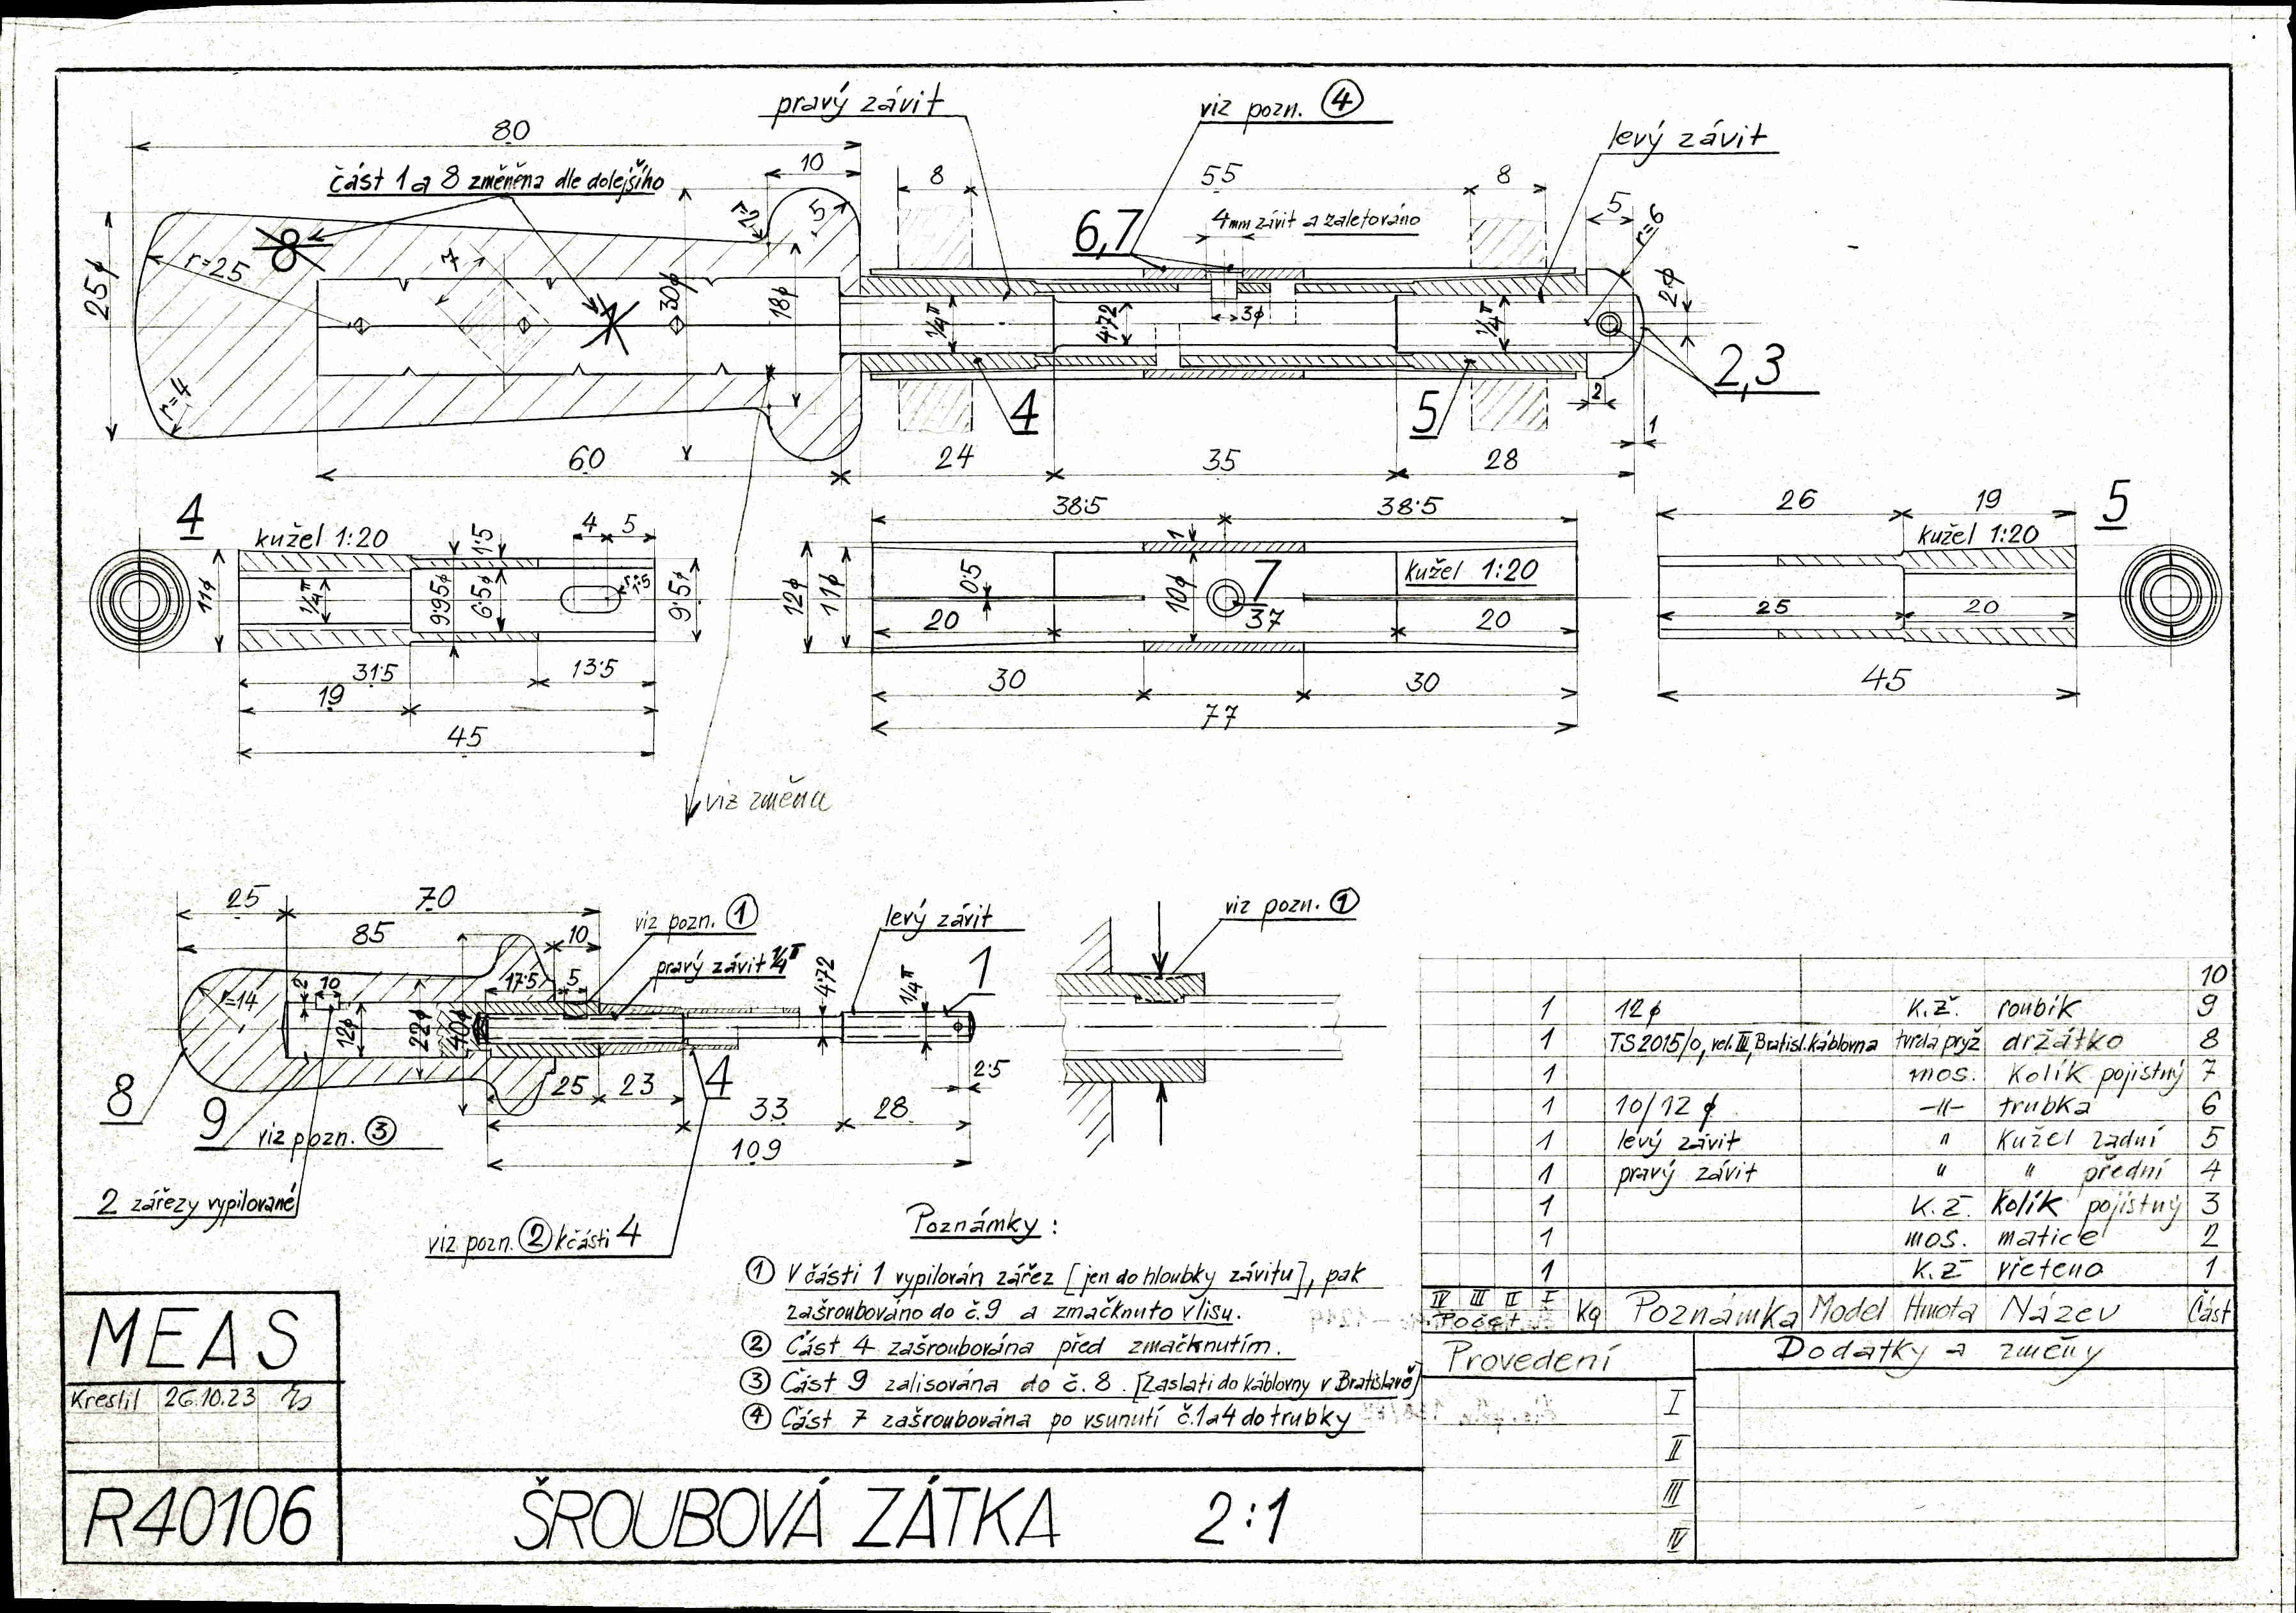 pravý závit
viz pozn. ④
levý závit
80
část 1 a 8 změněna dle dolejšího
10
8
55
8
5
r=2
5
r=6
4mm závit a zaletováno
6,7
8
7
r=25
25⌀
30⌀
18⌀
1/4"
4·72
3⌀
1/4"
2⌀
2,3
r=4
4
5
2
1
60
24
35
28
4
kužel 1:20
1·5
4
5
11⌀
1/4"
9·95⌀
6·5⌀
r=1·5
9·5⌀
31·5
13·5
19
45
38·5
38·5
12⌀
11⌀
0·5
1
10⌀
7
kužel 1:20
20
37
20
30
30
77
26
19
5
kužel 1:20
25
20
45
viz změna
25
70
viz pozn. ①
levý závit
viz pozn. ①
85
10
pravý závit 1/4"
17·5
5
4·72
1/4"
1
r=14
2
10
12⌀
22⌀
40⌀
25
23
4
2·5
8
9
viz pozn. ③
33
28
109
2 zářezy vypilované
viz pozn. ② k části 4
Poznámky :
① V části 1 vypilován zářez [jen do hloubky závitu], pak
zašroubováno do č.9 a zmačknuto v lisu.
② Část 4 zašroubována před zmačknutím.
③ Část 9 zalisována do č. 8. [Zaslati do káblovny v Bratislavě]
④ Část 7 zašroubována po vsunutí č.1a4 do trubky
10
1 12⌀ K.ž. roubík 9
1 TS2015/0, vel. III, Bratisl. káblovna tvrdá pryž držátko 8
1 mos. kolík pojistný 7
1 10/12 ⌀ -"- trubka 6
1 levý závit " kužel zadní 5
1 pravý závit " " přední 4
1 K.ž. kolík pojistný 3
1 mos. matice 2
1 K.ž vřeteno 1
IV III II I
Počet Kg Poznámka Model Hmota Název Část
Provedení Dodatky a změny
I
II
III
IV
MEAS
Kreslil 26.10.23
R40106
ŠROUBOVÁ ZÁTKA 2:1